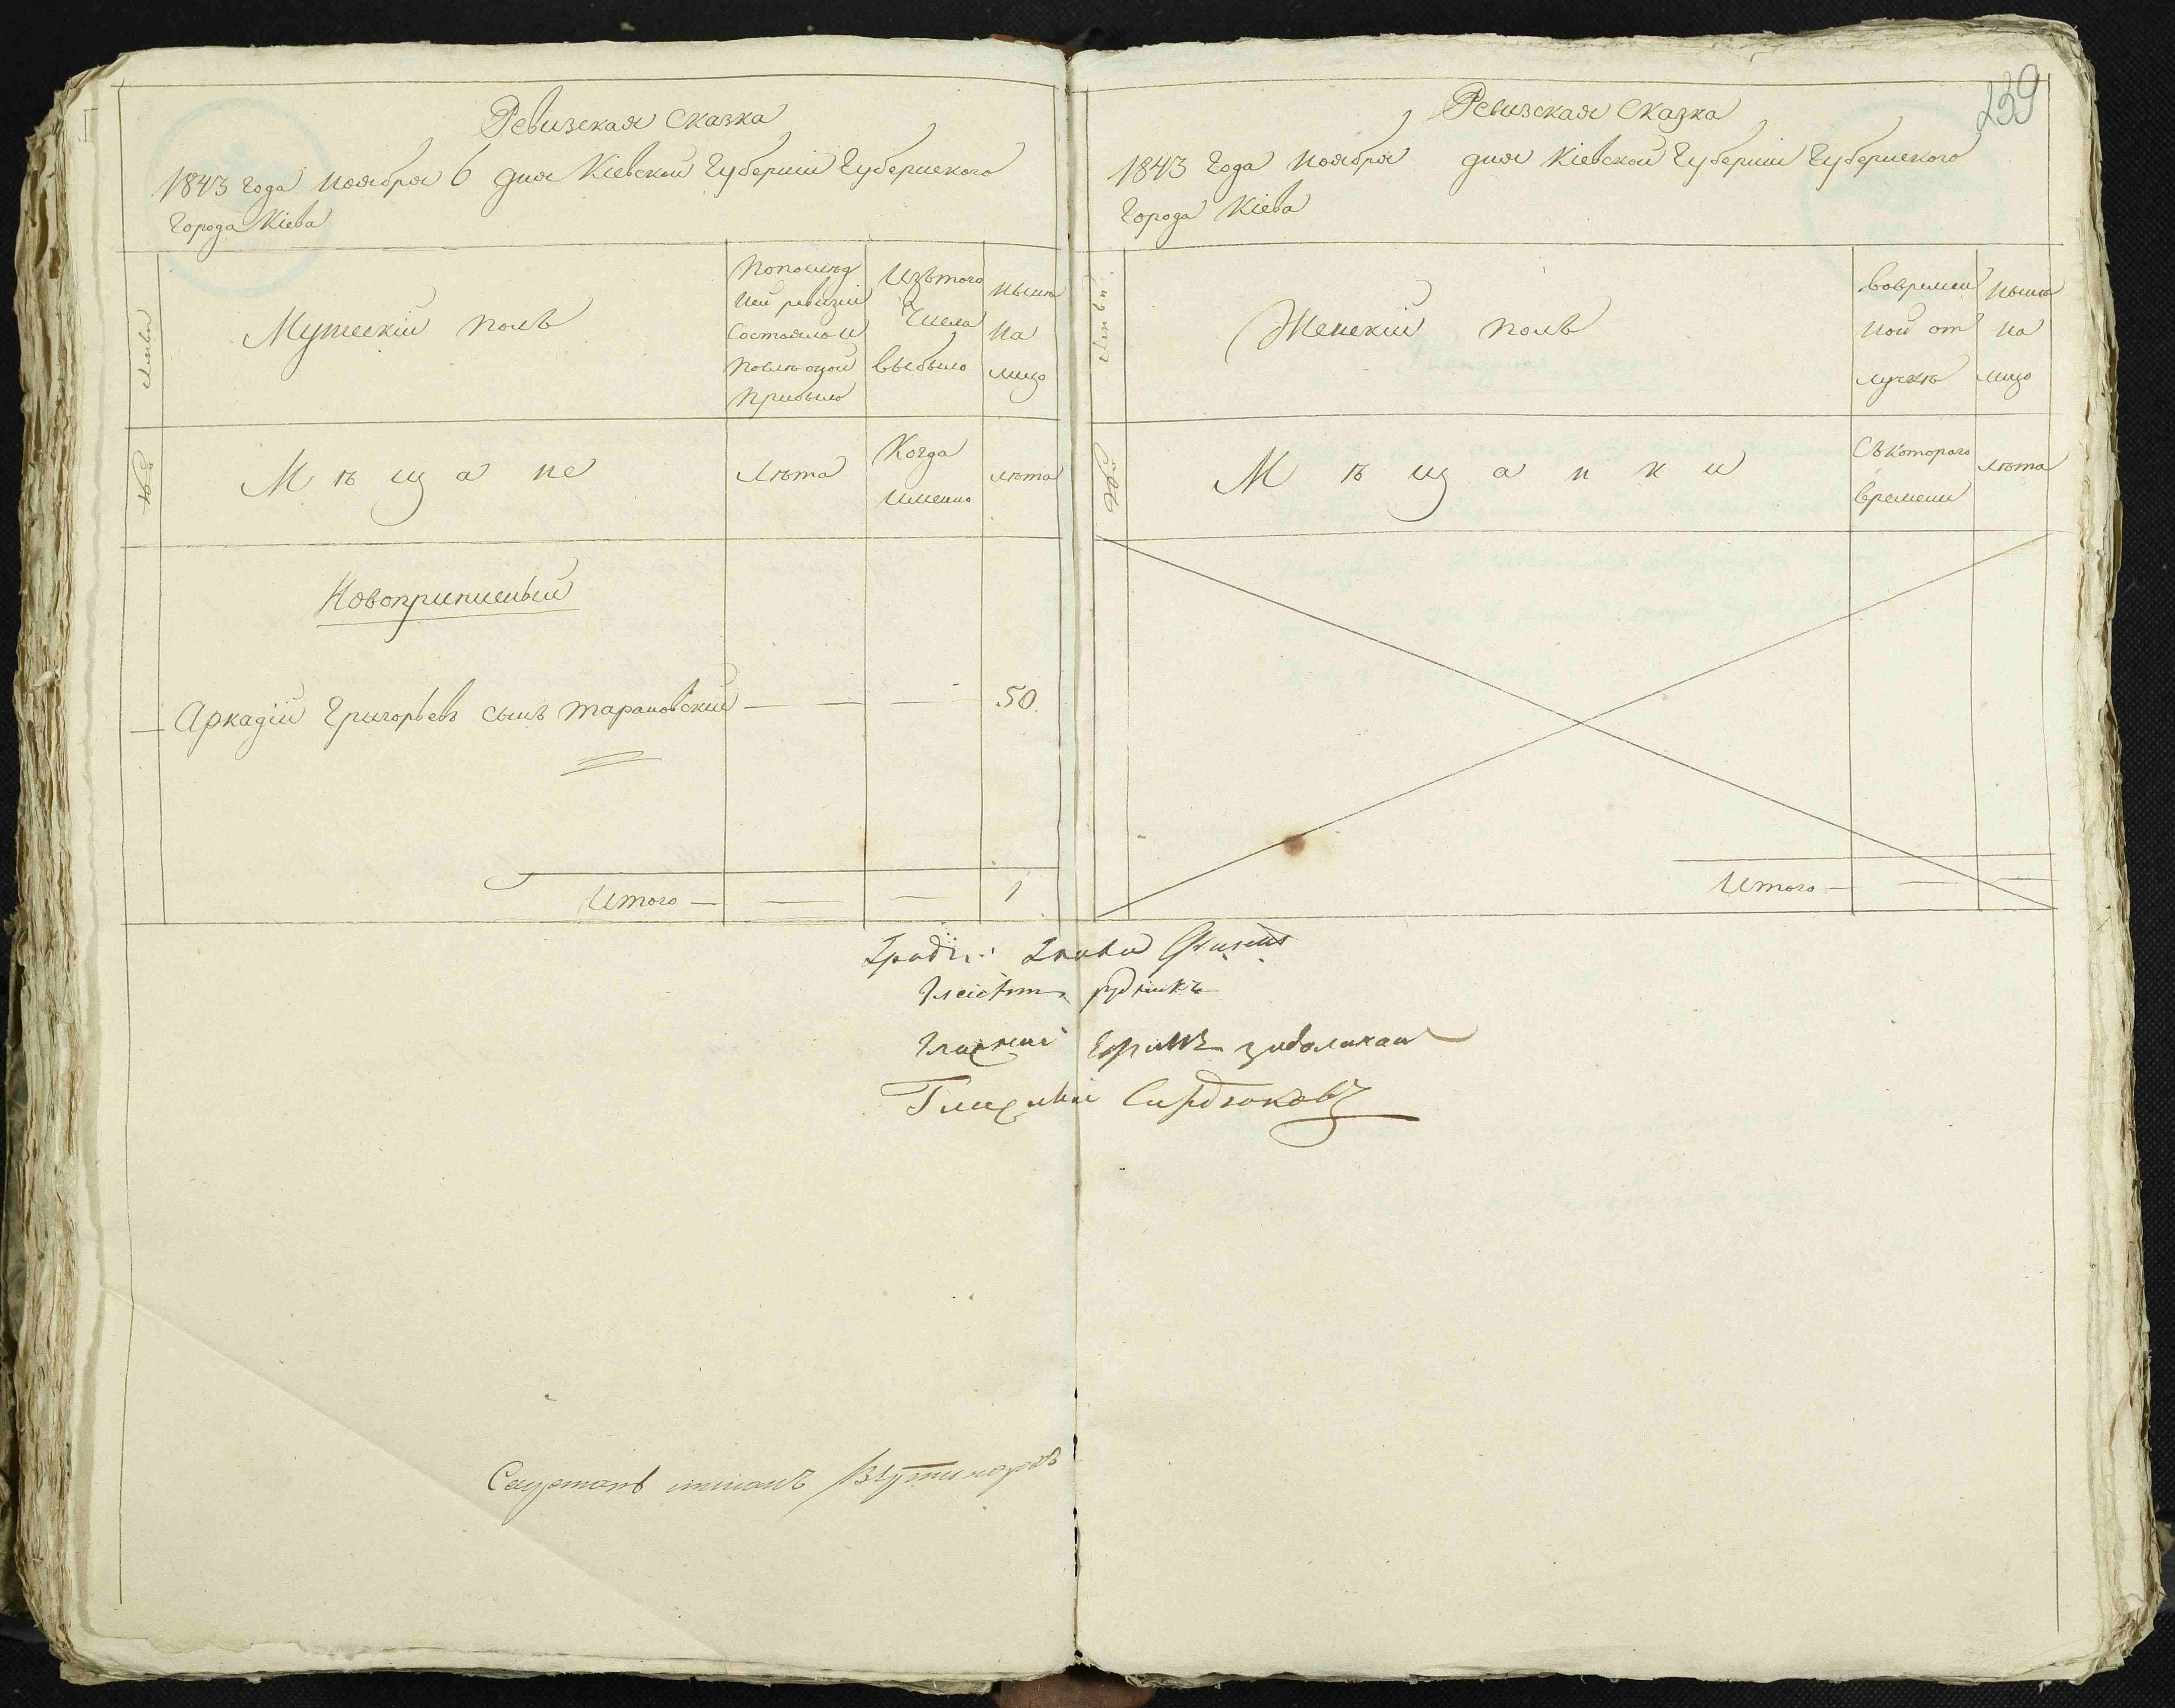 Ревизская Сказка
1843 года Ноября 6 дня Кіевской Губерніи Губернского
Города Кіева
Мужескій полъ
По послѣд
ней ревизіи
состояло и
послѣ оной
прибыло
Изъ того
Числа
выбыло
нынѣ
на
лицо
М ѣ щ а не
Лѣта
Когда
именно
лѣта
Новоприписный
Аркадій Григорьевъ сынъ Тарановскій — — — 50.
Итого — — — 1
239
Ревизская Сказка
1843 Года Ноября дня Кіевской Губерніи Губернского
Города Кіева
Женскій полъ
Во времен
ной от
лучкѣ
нынѣ
на
лицо
М ѣ щ а н к и
Съ котораго
времени
лѣта
Итого — — —
Гласный
Гласный Сердюковъ